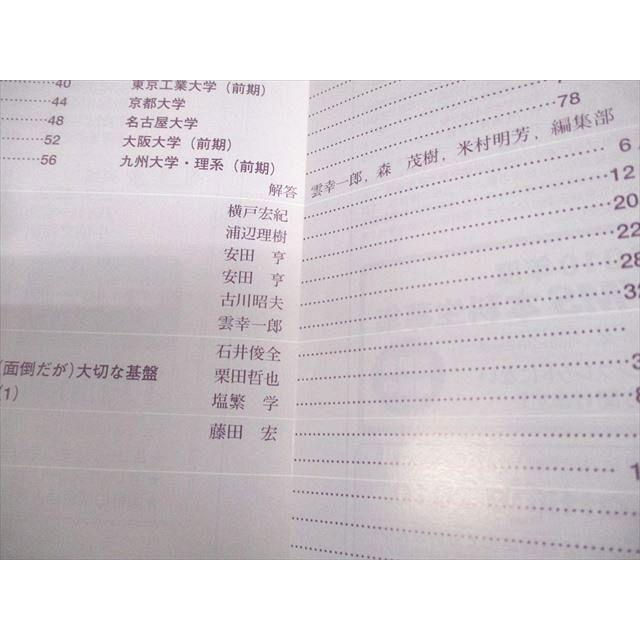 40 東京工業大学（前期）
44 京都大学
78
48 名古屋大学
52 大阪大学（前期）
56 九州大学・理系（前期）
解答 雲幸一郎，森 茂樹，米村明芳，編集部
6
横戸宏紀 12
浦辺理樹 20
安田 亨 22
安田 亨 28
古川昭夫
雲幸一郎
石井俊全
（面倒だが）大切な基盤 栗田哲也
(1) 塩繁 学
藤田 宏